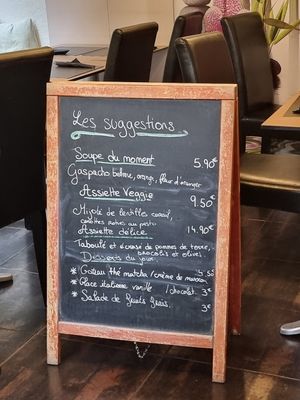 Les suggestions
Soupe du moment 5.90€
Gaspacho tomate, orange, fleur d'oranger
Assiette Veggie 9.50€
Mijoté de lentilles corail,
carottes au pesto
Assiette délice 14.90€
Taboulé et écrasé de pommes de terre,
brocolis et olives
Desserts du jour
* Gateau thé matcha/crème de marron 4.50€
* Glace italienne vanille /chocolat 3€
* Salade de fruits frais. 3€